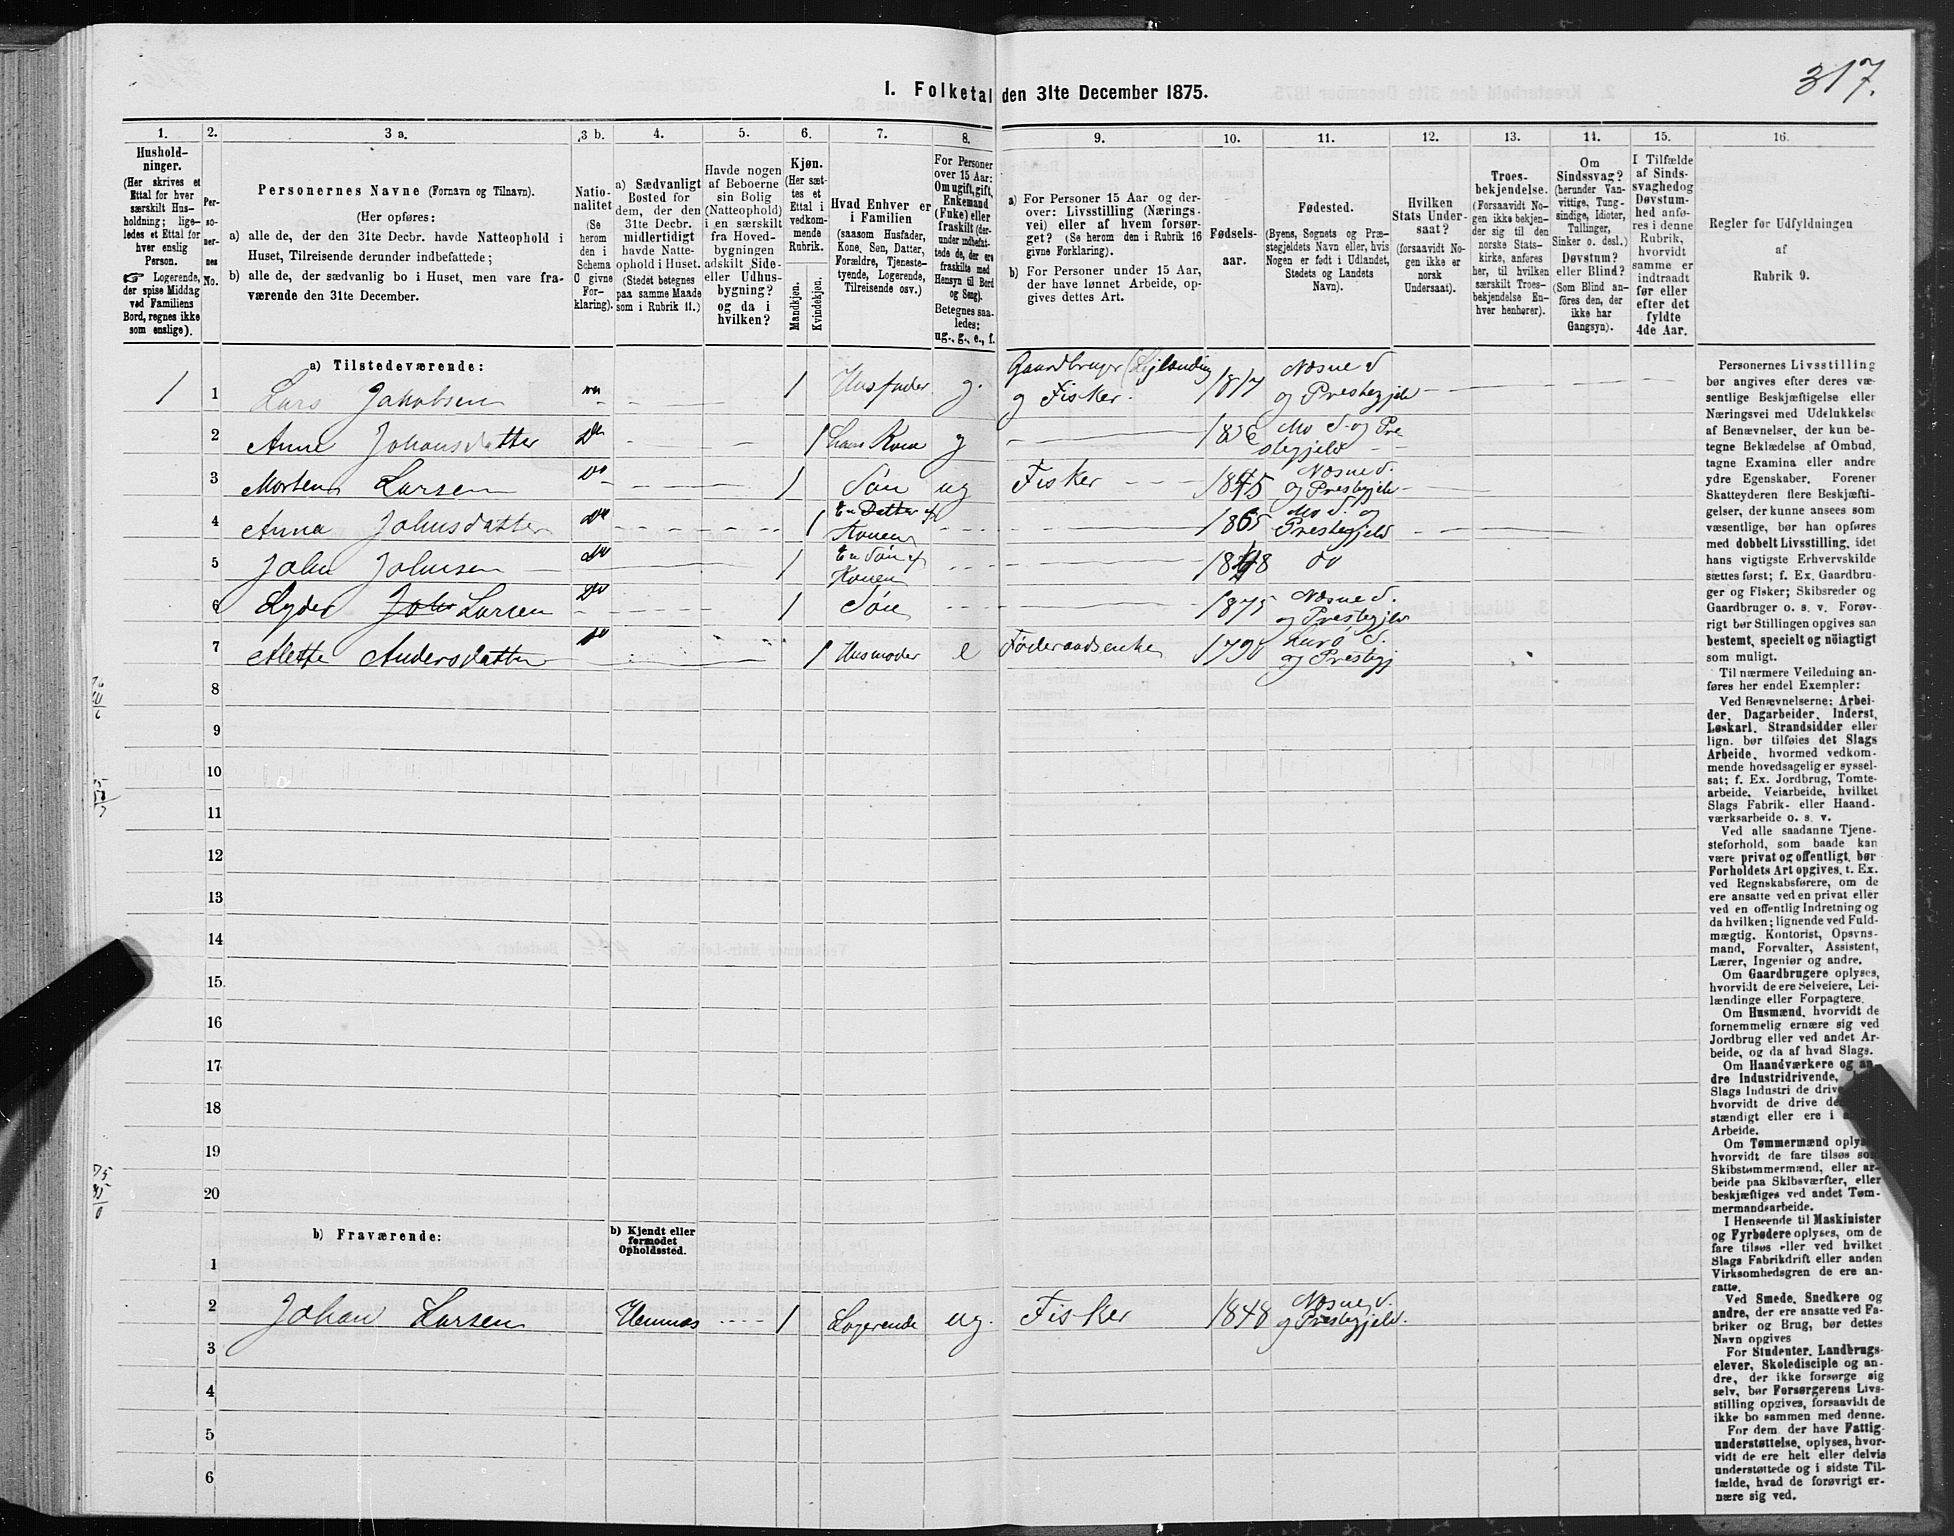 317.
1. Folketal den 31te December 1875.
1. 2. 3 a. 3 b. 4. 5. 6. 7. 8. 9. 10. 11. 12. 13. 14. 15. 16.
Hushold-
ninger.
(Her skrives et
Ettal for hver
særskilt Hus-
holdning; lige-
ledes et Ettal for
hver enslig
Person.
☞ Logerende,
der spise Middag
ved Familiens
Bord, regnes ikke
som enslige).
Per-
so-
ner-
nes
No.
Personernes Navne (Fornavn og Tilnavn).
(Her opføres:
a) alle de, der den 31te Decbr. havde Natteophold i
Huset, Tilreisende derunder indbefattede;
b) alle de, der sædvanlig bo i Huset, men vare fra-
værende den 31te December.
Natio-
nalitet
(Se
herom
den i
Schema
G givne
For-
klaring).
a) Sædvanligt
Bosted for
dem, der den
31te Decbr.
midlertidigt
havde Natte-
ophold i Huset.
(Stedet betegnes
paa samme Maade
som i Rubrik 11.)
Havde nogen
af Beboerne
sin Bolig
(Natteophold)
i en særskilt
fra Hoved-
bygningen
adskilt Side-
eller Udhus-
bygning?
og da i
hvilken?
Kjøn.
(Her sæt-
tes et
Ettal i
vedkom-
mende
Rubrik.
Mandkjøn.
Kvindekjøn.
Hvad Enhver er
i Familien
(saasom Husfader,
Kone, Søn, Datter,
Forældre, Tjeneste-
tyende, Logerende,
Tilreisende osv.)
For Personer
over 15 Aar:
Om ugift, gift,
Enkemand
(Enke) eller
fraskilt (der-
under indbefat-
tede de, der ere
fraskilte med
Hensyn til Bord
og Seng).
Betegnes saa-
ledes:
ug., g., e., f.
a) For Personer 15 Aar og der-
over: Livsstilling (Nærings-
vei) eller af hvem forsør-
get? (Se herom den i Rubrik 16
givne Forklaring).
b) For Personer under 15 Aar,
der have lønnet Arbeide, op-
gives dettes Art.
Fødsels-
aar.
Fødested.
(Byens, Sognets og Præ-
stegjeldets Navn eller, hvis
Nogen er født i Udlandet,
Stedets og Landets
Navn).
Hvilken
Stats Under-
saat?
(forsaavidt No-
gen ikke er
norsk
Undersaat).
Troes-
bekjendelse.
(Forsaavidt No-
gen ikke bekjen-
der sig til den
norske Stats-
kirke, anføres
her, til hvilken
særskilt Troes-
bekjendelse En-
hver henhører).
Om
Sindssvag?
(herunder Van-
vittige, Tung-
sindige, Idioter,
Tullinger,
Sinker o. desl.)
Døvstum?
eller Blind?
(Som Blind an-
føres den, der
ikke har
Gangsyn).
I Tilfælde
af Sinds-
svaghed og
Døvstum-
hed anfø-
res i denne
Rubrik,
hvorvidt
samme er
indtraadt
før eller
efter det
fyldte
4de Aar.
Regler for Udfyldningen
af
Rubrik 9.
a) Tilstedeværende:
1 1 Lars Jakobsen 1 Husfader g. Gaardbruger (Lejlænding og Fisker. 1817 Næsne S og Prestegjeld
2 Anne Johansdatter Do 1 hans Kone g 1826 Mo S. og Pre stegjeld
3 Morten Larsen Do 1 Søn ug Fisker 1845 Næsne S. og Prestegjeld
4 Anna Johnsdatter Do 1 En Datter af Konen 1865 Mo S. og Prestegjeld
5 John Johnsen Do 1 En Søn af Konen 1848 Do
6 Lyder Larsen Do 1 Søn 1875 Næsne S. og Prestegjeld
7 Alette Andersdatter Do 1 Husmoder e Føderaadsenke 1790 Lurø S. og Prestegj
8
9
10
11
12
13
14
15
16
17
18
19
20
b) Fraværende:
b) Kjendt eller
formodet
Opholdssted.
1
2 Johan Larsen Hemnæs 1 Logerende ug. Fisker 1848 Næsne S. og Prestegjeld.
3
4
5
6
Personernes Livsstilling
bør angives efter deres væ-
sentlige Beskjæftigelse eller
Næringsvei med Udelukkelse
af Benævnelser, der kun be-
tegne Beklædelse af Ombud,
tagne Examina eller andre
ydre Egenskaber. Forener
Skatteyderen flere Beskjæfti-
gelser, der kunne ansees som
væsentlige, bør han opføres
med dobbelt Livsstilling, idet
hans vigtigste Erhvervskilde
sættes først; f. Ex. Gaardbru-
ger og Fisker; Skibsreder og
Gaardbruger o. s. v. Forøv-
rigt bør Stillingen opgives saa
bestemt, specielt og nöiagtigt
som muligt.
Til nærmere Veiledning an-
føres her endel Exempler:
Ved Benævnelserne: Arbei-
der, Dagarbeider, Inderst,
Løskarl, Strandsidder eller
lign. bør tilføies det Slags
Arbeide, hvormed vedkom-
mende hovedsagelig er syssel-
sat; f. Ex. Jordbrug, Tomte-
arbeide, Veiarbeide, hvilket
Slags Fabrik- eller Haand-
værksarbeide o. s. v.
Ved alle saadanne Tjene-
steforhold, som baade kan
være privat og offentligt, bør
Forholdets Art opgives, t. Ex.
ved Regnskabsførere, om de
ere ansatte ved en privat eller
ved en offentlig Indretning og
da hvilken; lignende ved Fuld-
mægtig, Kontorist, Opsyns-
mand, Forvalter, Assistent,
Lærer, Ingeniør og andre.
Om Gaardbrugere oplyses,
hvorvidt de ere Selveiere, Lei-
lændinge eller Forpagtere.
Om Husmænd, hvorvidt de
fornemmelig ernære sig ved
Jordbrug eller ved andet Ar-
beide, og da af hvad Slags.
Om Haandværkere og an-
dre Industridrivende,
Slags Industri de drive
hvorvidt de drive
stændigt eller ere i
Arbeide.
Om Tømmermænd oplyses
hvorvidt de fare tilsøs som
Skibstømmermænd, eller ar-
beide paa Skibsværfter, eller
beskjæftiges ved andet Tøm-
mermandsarbeide.
I Henseende til Maskinister
og Fyrbødere oplyses, om de
fare tilsøs eller ved hvilket
Slags Fabrikdrift eller anden
Virksomhedsgren de ere an-
satte.
Ved Smede, Snedkere og
andre, der ere ansatte ved Fa-
briker og Brug, bør dettes
Navn opgives
For Studenter, Landbrugs-
elever, Skoledisciple og an-
dre, der ikke forsørge sig
selv, bør Forsørgerens Livs-
stilling opgives, forsaavidt de
ikke bo sammen med denne.
For dem, der have Fattig-
understøttelse, oplyses, hvor-
vidt de ere helt eller delvis
understøttede og i sidste Til-
fælde, hvad de forøvrigt er-
nære sig ved.